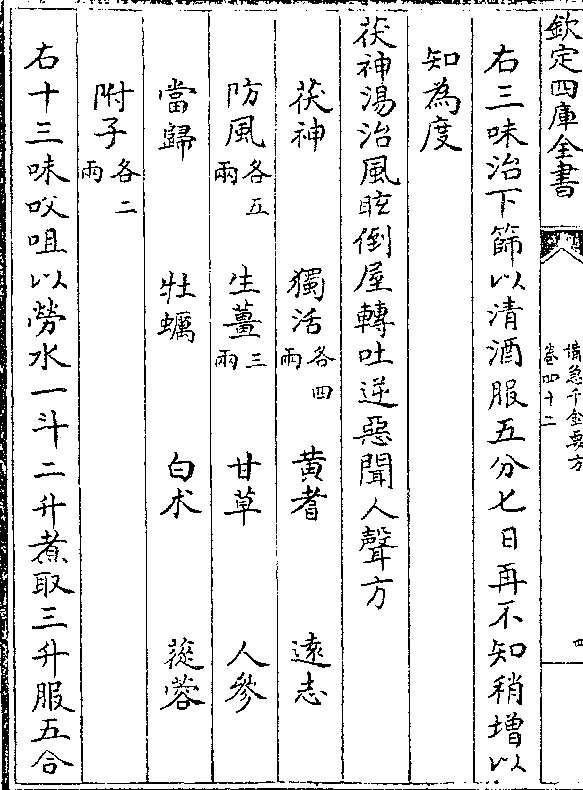 欽定四庫全書
備急千金要方
卷四十二
四
右三味治下篩以清酒服五分七日再不知稍增以
知為度
茯神湯治風眩倒屋轉吐逆惡聞人聲方
茯神 獨活各四兩 黃耆 遠志
防風各五兩 生薑三兩 甘草 人參
當歸 牡蠣 白朮 蓯蓉
附子各二兩
右十三味㕮咀以勞水一斗二升煮取三升服五合